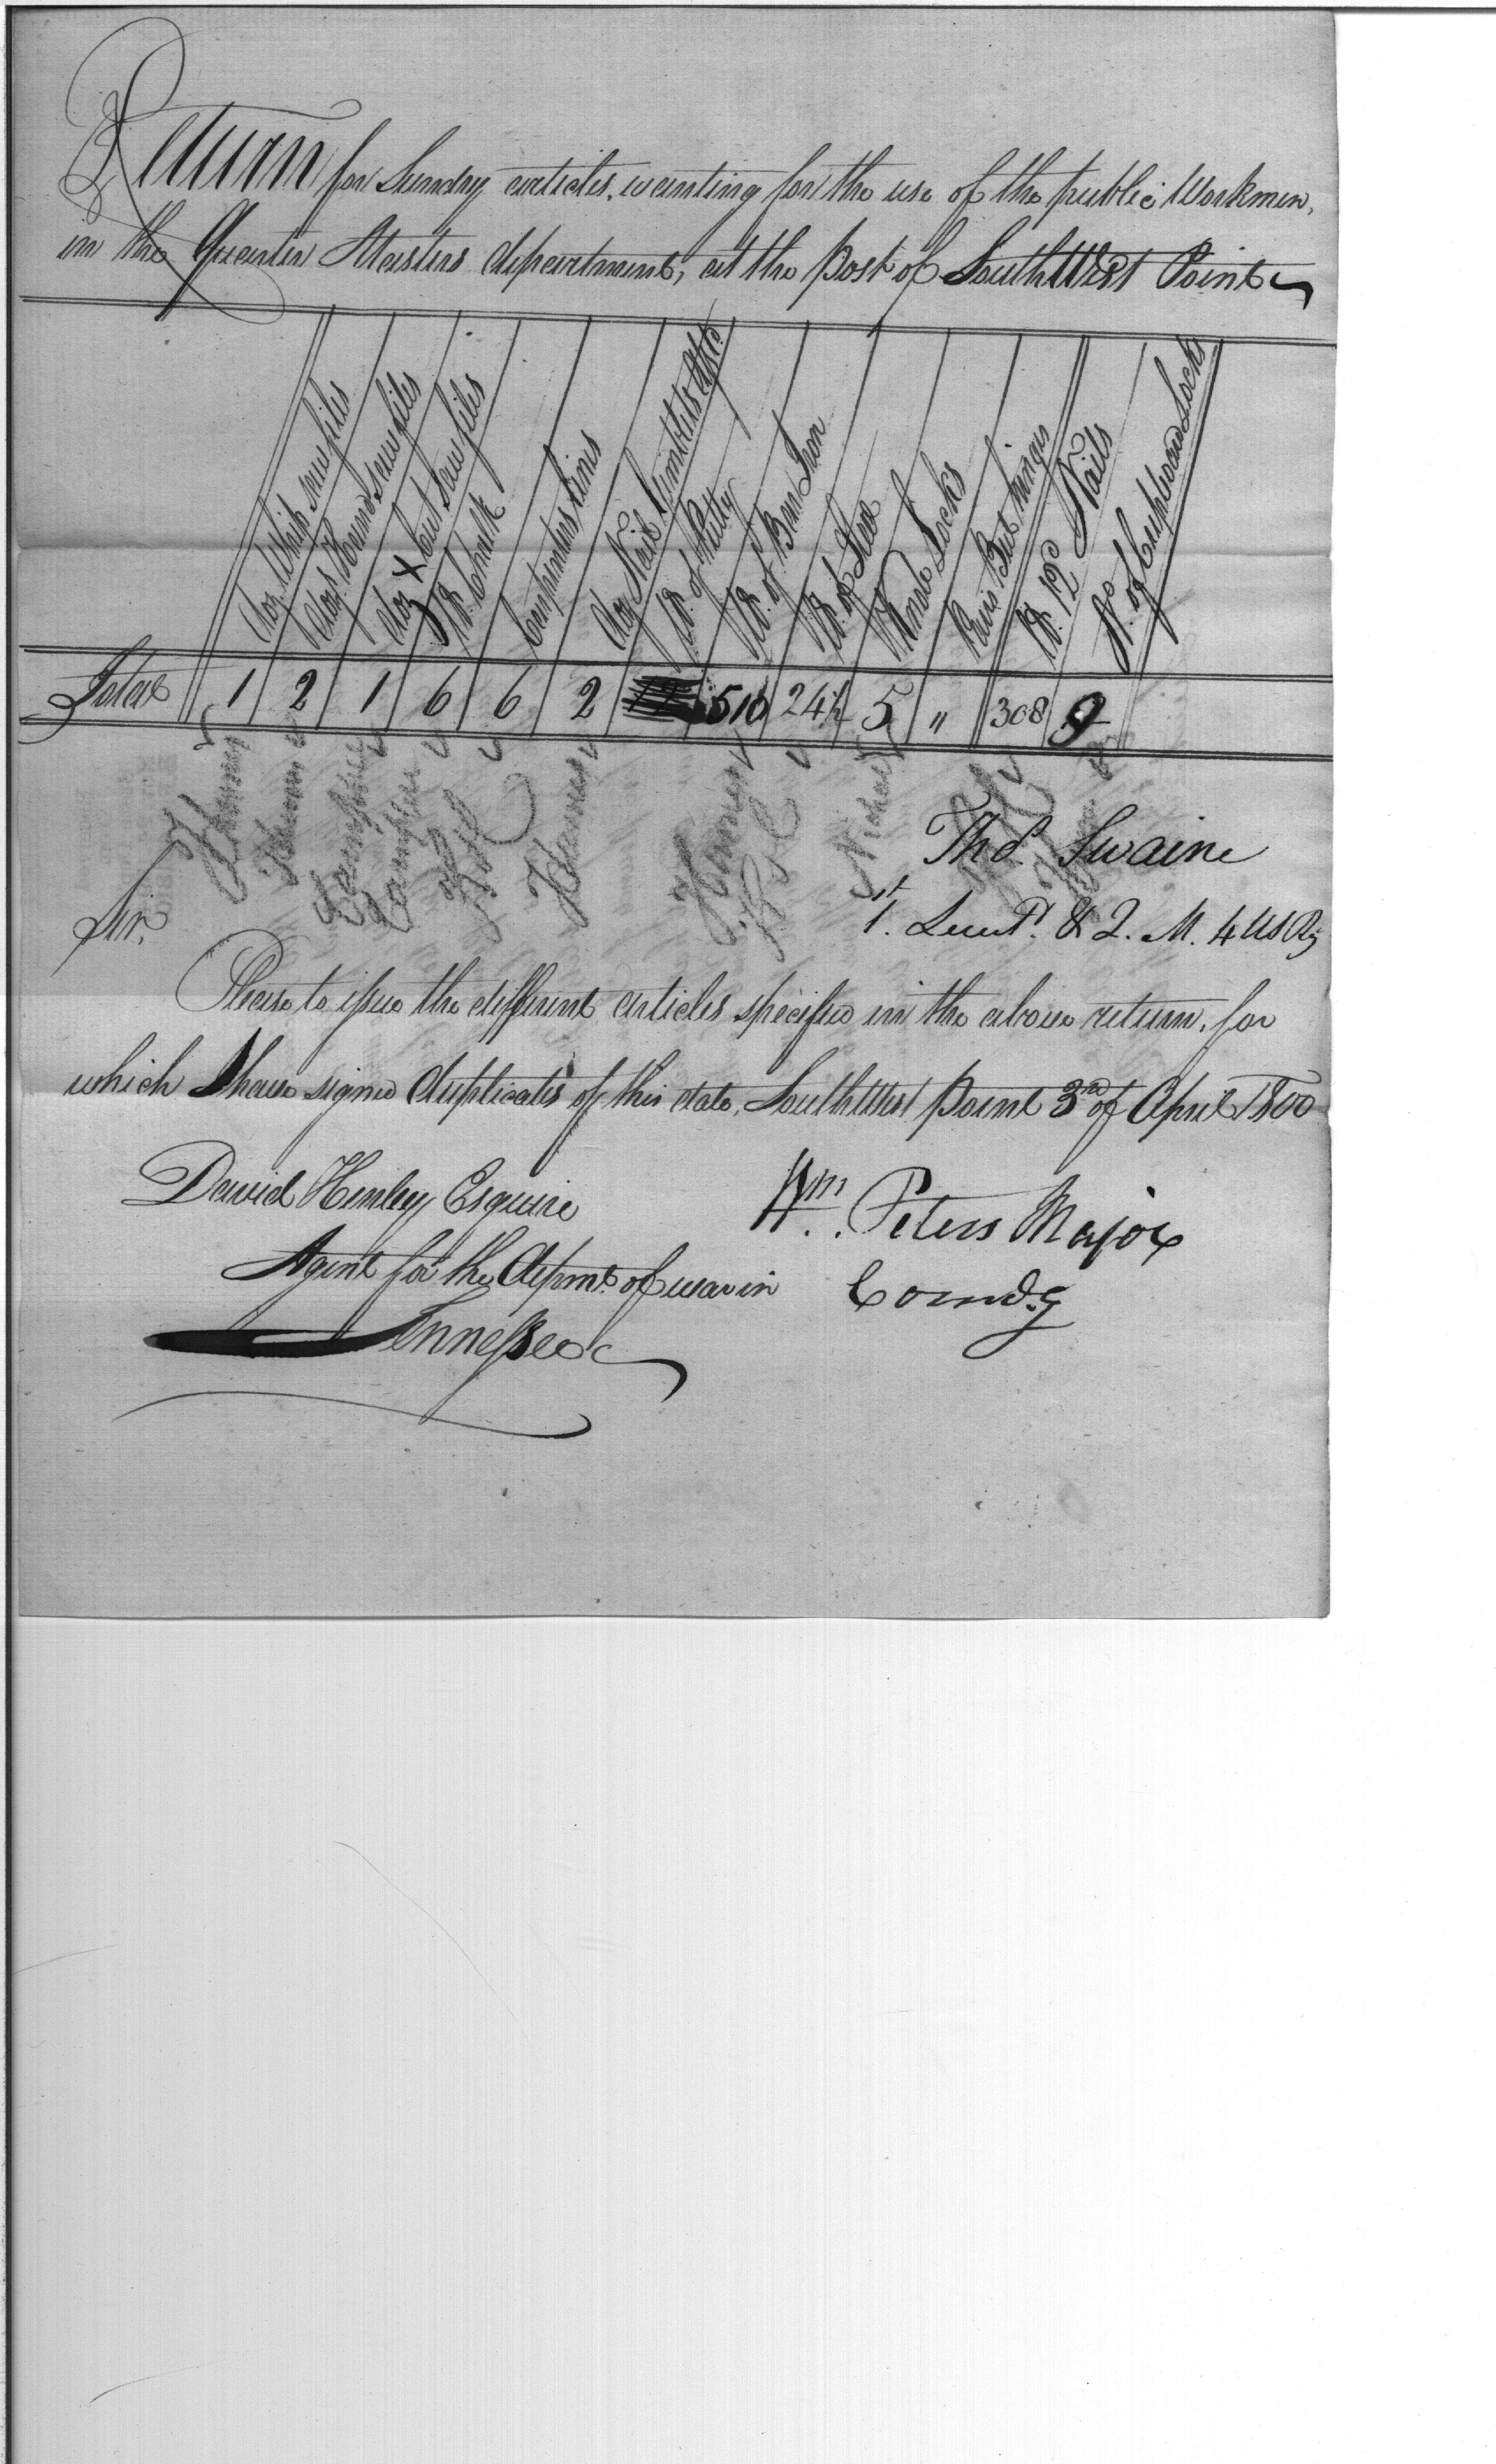 Return for Sundry articles, wanting for the use of the public Workmen,
in the Quarter Masters department, at the Post of South West Point
Doz. Whip saw files
Doz. Hand saw files
Doz X Cut saw files
lb. Chalk
Carpenters lines
Doz Nail Gimblets
lb. of Putty
lb. of Barr Iron
lb. of
Locks
Pair But hinges
lb. 12d Nails
No. of Cupboard Locks
Total 1 2 1 6 6 2 12 510 24½ 5 " 308 9
Thos. Swaine
1st. Lieut. & Q. M. 4 US Rg
Sir,
Please to issue the different articles specified in the above return, for
which I have signed duplicates of this date, South West Point 3rd of April 1800
David Henley Esquire
Wm. Peters Major
Agent for the depmt. of war in
Comdg
Tennessee